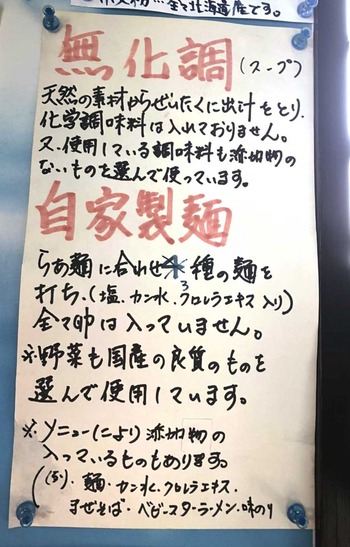 全て北海道産です。
無化調(スープ)
天然の素材からぜいたくに出汁をとり、
化学調味料は入れておりません。
又、使用している調味料も添加物の
ないものを選んで使っています。
自家製麺
らぁ麺に合わせ 3種の麺を
打ち、(塩、カン水、クロレラエキス入り)
全て卵は入っていません。
※野菜も国産の良質のものを
選んで使用しています。
※、メニューにより添加物の
入っているものもあります。
麺・カン水、クロレラエキス・
まぜそば・ベビースターラーメン・味のり